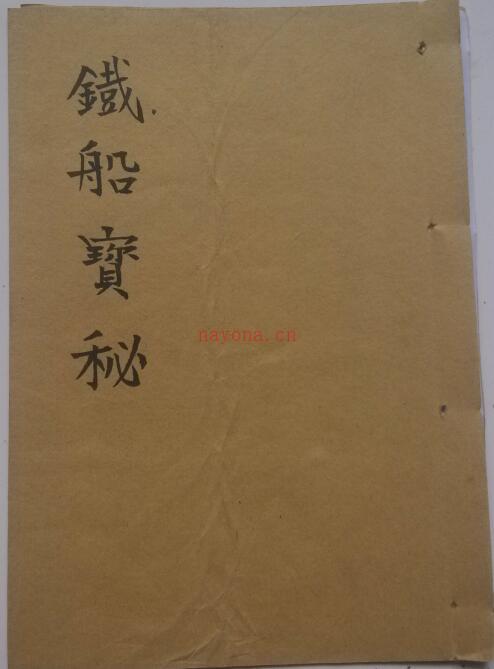 鐵船寶秘
nayona.cn